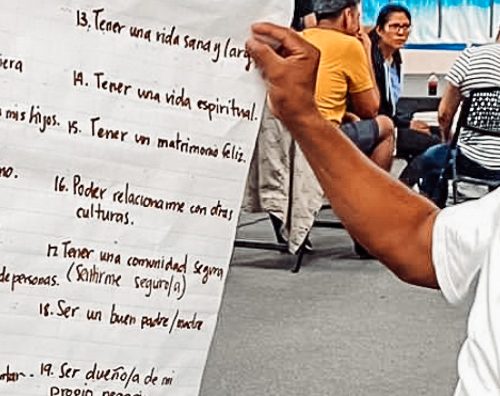 13. Tener una vida sana y larg
14. Tener una vida espiritual.
mis hijos.
15. Tener un matrimonio feliz.
16. Poder relacionarme con otras
culturas.
17. Tener una comunidad segura
de personas.
(Sentirme seguro/a)
18. Ser un buen padre/madre
19. Ser dueño/a de mi
propio